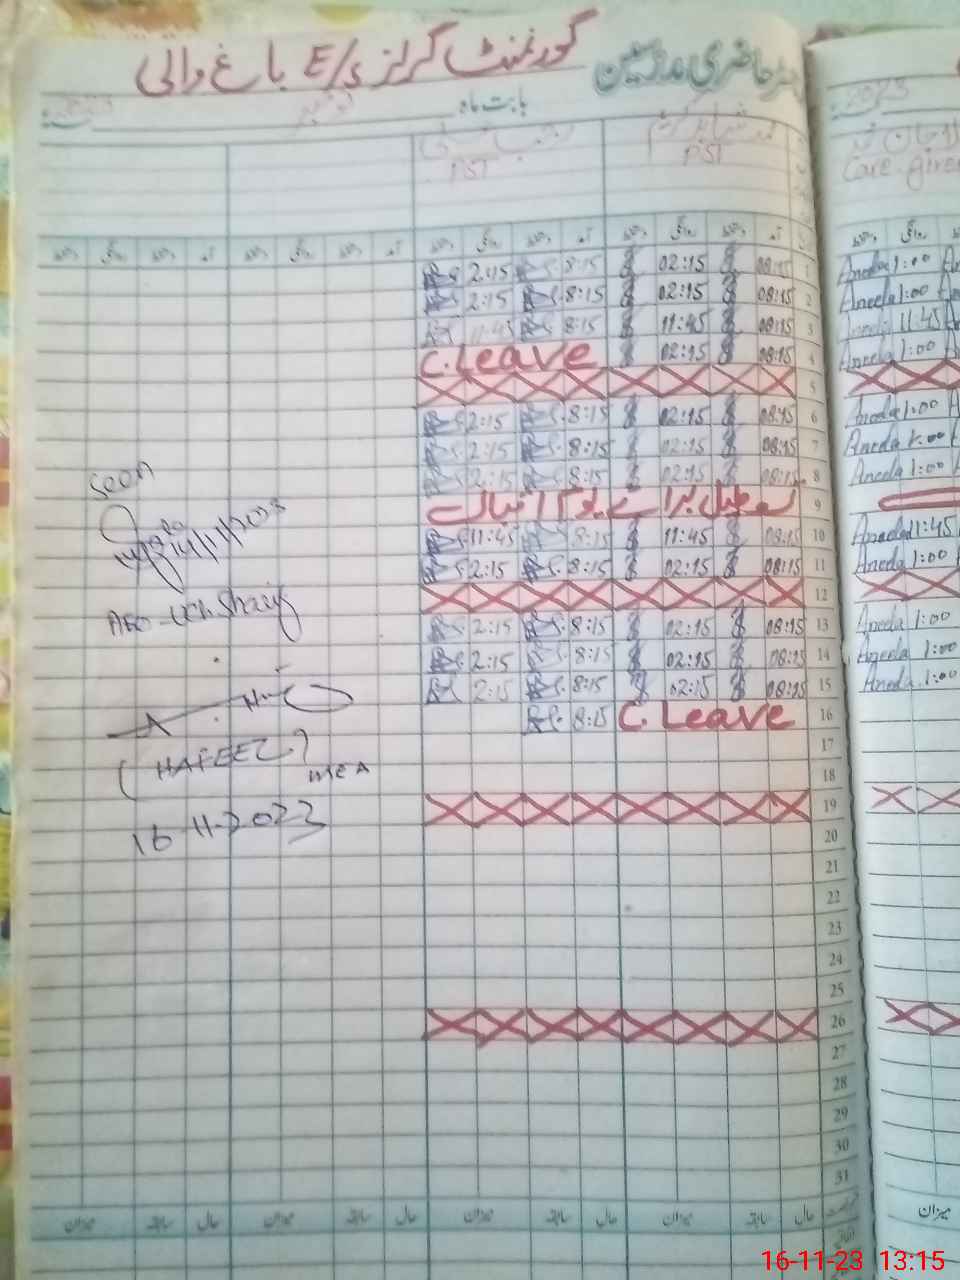 رجسٹر حاضری مدرسین گورنمنٹ گرلز ای/E باغ والی
بابت ماہ نومبر 2023
PST PST
آمد دستخط روانگی دستخط آمد دستخط روانگی دستخط آمد دستخط روانگی دستخط آمد دستخط روانگی دستخط
1 08:15 02:15 8:15 2:15
2 08:15 02:15 8:15 2:15
3 08:15 11:45 8:15 11:45
4 08:15 02:15 C. Leave
5
6 08:15 02:15 8:15 2:15
7 08:15 02:15 8:15 2:15
8 08:15 02:15 8:15 2:15
9 تعطیل برائے یوم اقبال
10 08:15 11:45 8:15 11:45
11 08:15 02:15 8:15 2:15
12
13 08:15 02:15 8:15 2:15
14 08:15 02:15 8:15 2:15
15 08:15 02:15 8:15 2:15
16 C. Leave 8:15
17
18
19
20
21
22
23
24
25
26
27
28
29
30
31
حال سابقہ میزان حال سابقہ میزان حال سابقہ میزان حال سابقہ میزان
Seen
14/11/2023
AEO - Uch Sharif
(HAFEEZ)
MEA
16-11-2023
2023
Care giver
دستخط روانگی
Aneela 1:00
Aneela 1:00
Aneela 11:45
Aneela 1:00
Aneela 1:00
Aneela 1:00
Aneela 1:00
Aneela 11:45
Aneela 1:00
Aneela 1:00
Aneela 1:00
Aneela 1:00
میزان
16-11-23 13:15